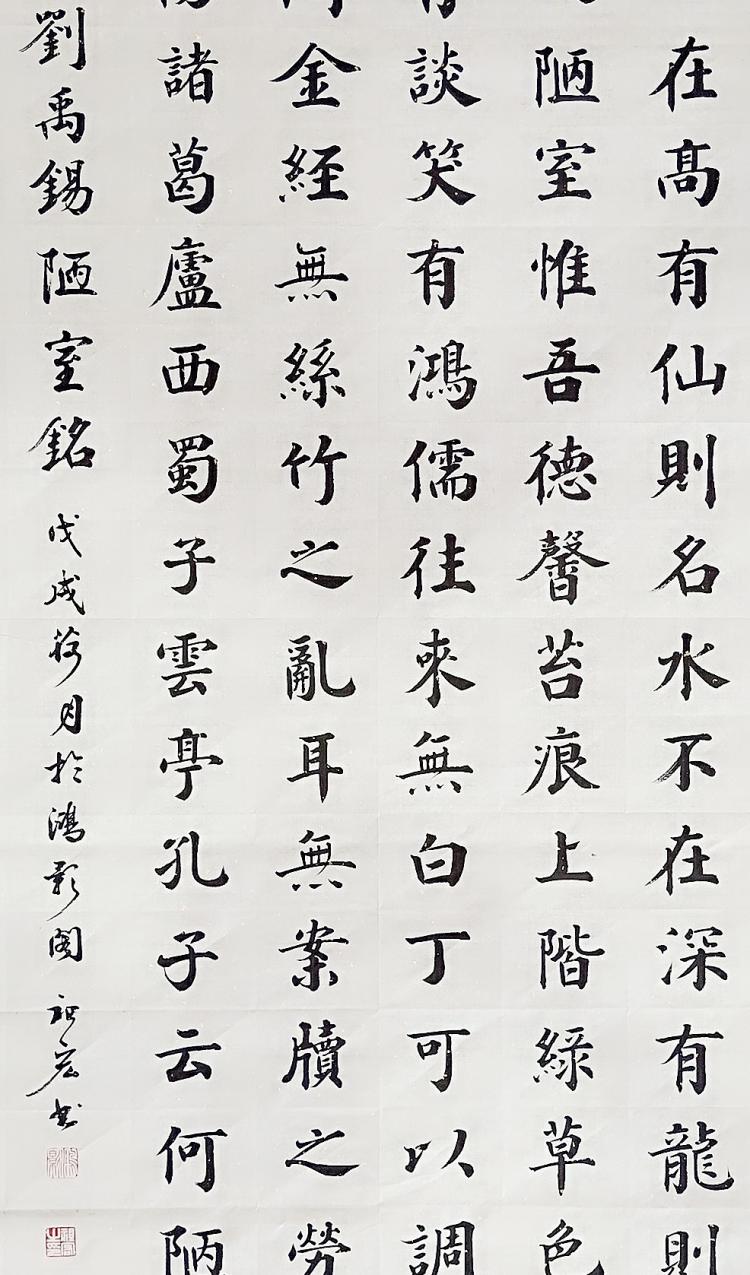 在高有仙則名水不在深有龍則
陋室惟吾德馨苔痕上階綠草色
談笑有鴻儒往來無白丁可以調
金經無絲竹之亂耳無案牘之勞
諸葛廬西蜀子雲亭孔子云何陋
劉禹錫陋室銘戊戌荷月於鴻影閣